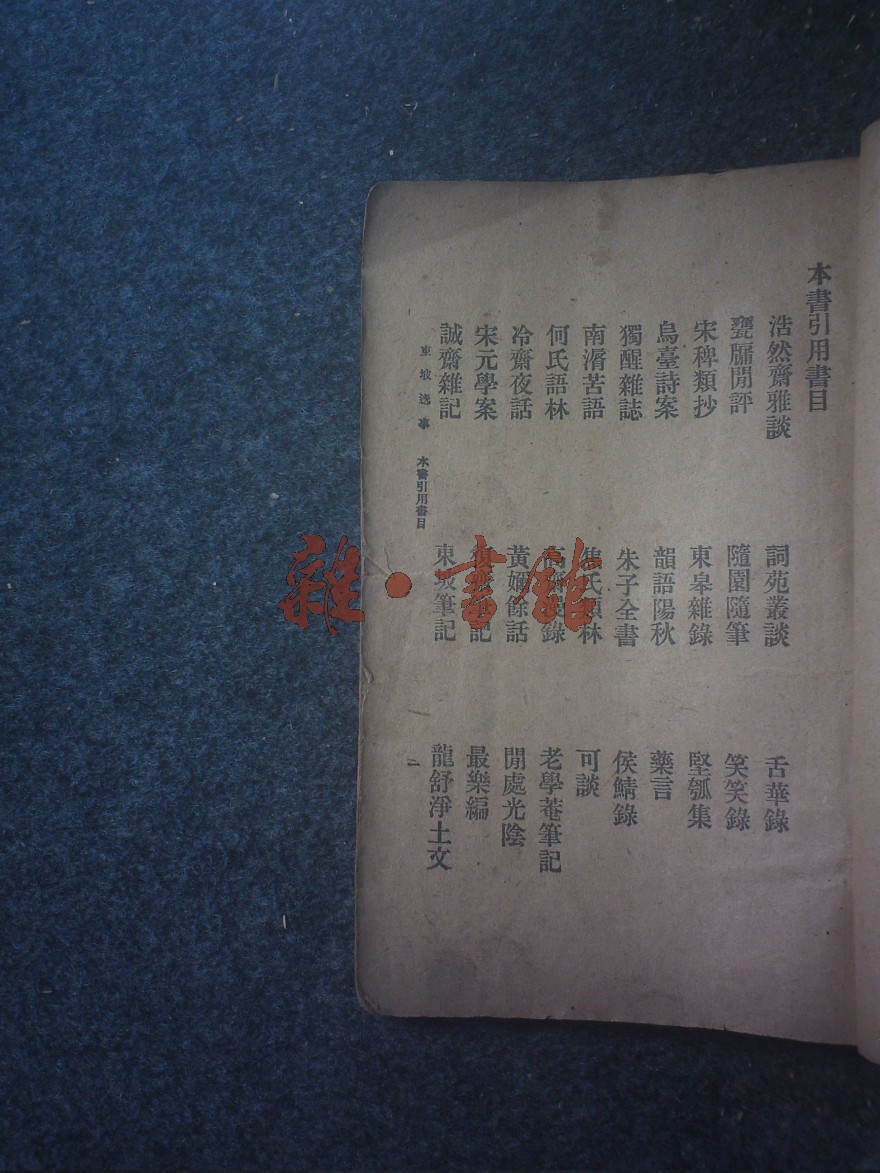 本書引用書目
浩然齋雅談 詞苑叢談 舌華錄
甕牖閒評 隨園隨筆 笑笑錄
宋稗類抄 東皋雜錄 堅瓠集
烏臺詩案 韻語陽秋 藥言
獨醒雜誌 朱子全書 侯鯖錄
南 苦語 氏類林 可談
何氏語林 高齋漫錄 老學菴筆記
冷齋夜話 黃嬭餘話 閒處光陰
宋元學案 記 最樂編
誠齋雜記 東坡筆記 龍舒淨土文
東坡逸事 本書引用書目 二
雜·書館